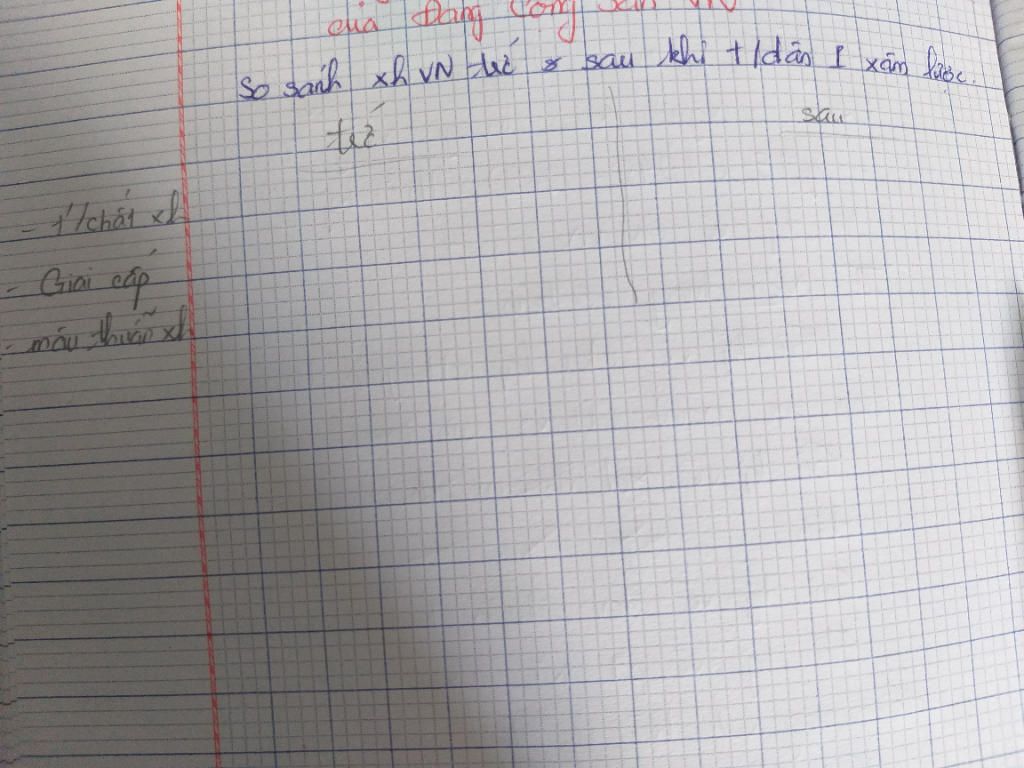 của Đảng Cộng sản VN
So sánh xh VN trc & sau khi t/dân P xâm lược.
trc
sau
- t/chất xh
- Giai cấp
- mâu thuẫn xh